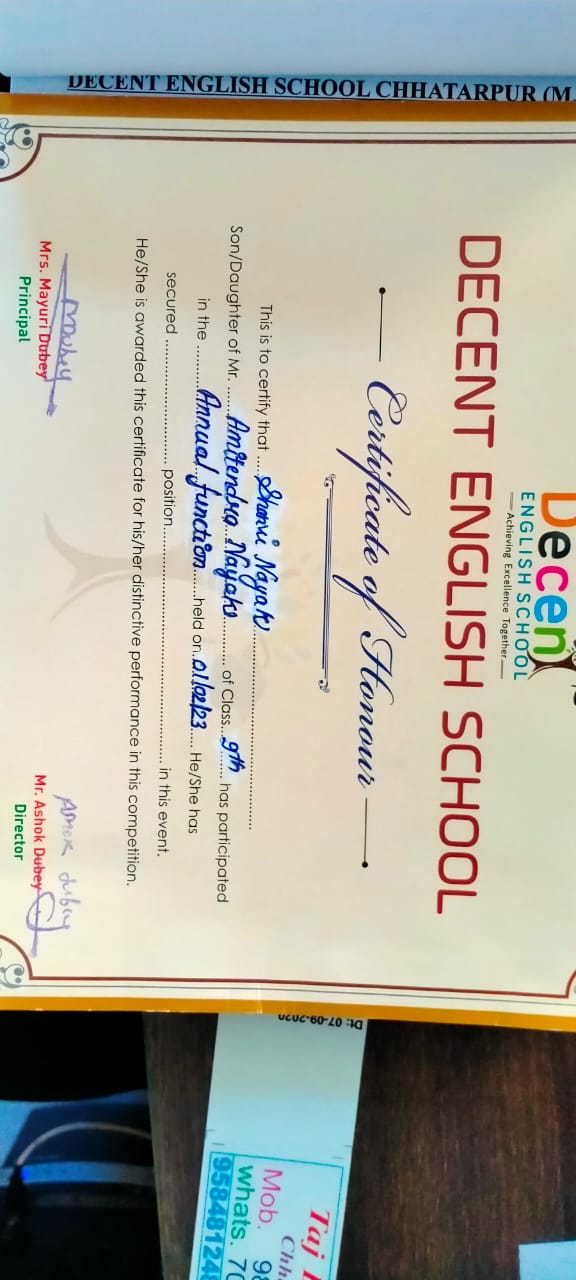 Decent
ENGLISH SCHOOL
Achieving Excellence Together
DECENT ENGLISH SCHOOL
Certificate of Honour
This is to certify that ....Shanvi Nayak..........
Son/Daughter of Mr. ......Amitendra Nayak........... of Class...9th...... has participated
in the .........Annual function......held on.01/02/23.... He/She has
secured .......................... position................................................. in this event.
He/She is awarded this certificate for his/her distinctive performance in this competition.
MDubey
Mrs. Mayuri Dubey
Principal
Ashok Dubey
Mr. Ashok Dubey
Director
DECENT ENGLISH SCHOOL CHHATARPUR (M.
Dt: 07-09-2020
Taj
Chh
Mob. 98
whats. 70
95848124